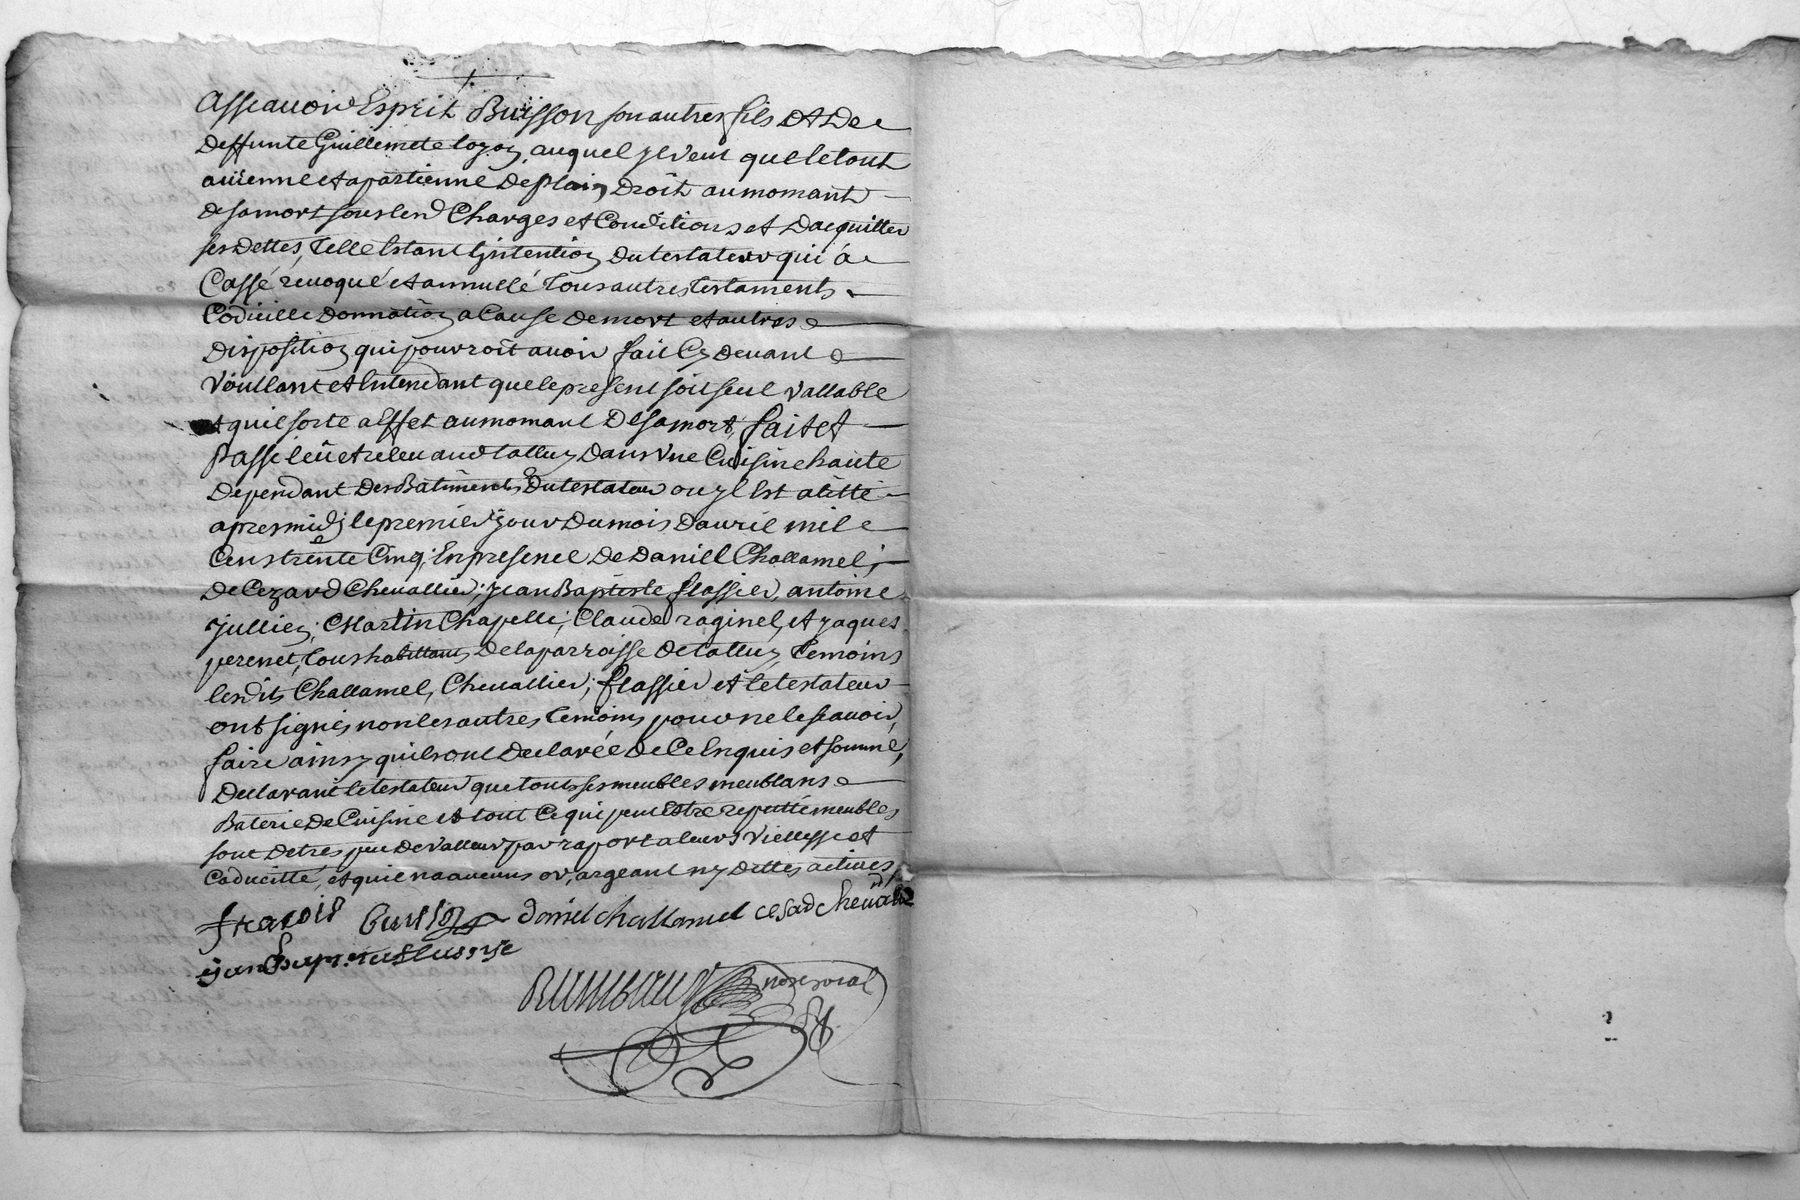 Asseavoir Esprit Buisson son autres fils et de
deffunte Guillemete loyon, auquel yl veut que le tout
avienne et apartienne de plain droit au momant
de sa mort sous lesd Charges et Conditions et dacquitter
ses dettes, Telle Estant Lintention du testateur qui á
Cassé revoqué et annullé Tous autres testaments
Codicille donnation a Cause de mort et autres
disposition qui pouvroit avoir fait Cy devant
Voullant et Entendant que le present soit seul vallable
et quil sorte a Effet au momant de sa mort, fait et
Passé leû et releu aud talluy dans Vne Cuisine haute
dependant des Batiments du testateur ou yl Est alitté
apres midj le premier jour du mois davril mil
Cens trente Cinq; En presence de daniel Challamel;
de Cezard Chevallier; jean Baptiste flassier, antoine
jullien; Martin Chapelle; Claude raginel, et jaques
perenet, Tous habittants de la parroisse de talluy Temoins
lesdits Challamel, Chevallier; flassier et le testateur
ont signés non les autres temoins pour ne le sçavoir
faire ainsy quils ont declarée de Ce Enquis et sommé,
declarant le testateur que touts ses meubles meublans
Baterie de Cuisine et tout Ce qui peut Estre reputté meubles
sont de tres peu de valleur par raport a leurs viellesse et
Caducitté, et quil na aucuns or, argeant ny dettes actives,
francois buisson daniel challamel cesad chevalie
ejan bap